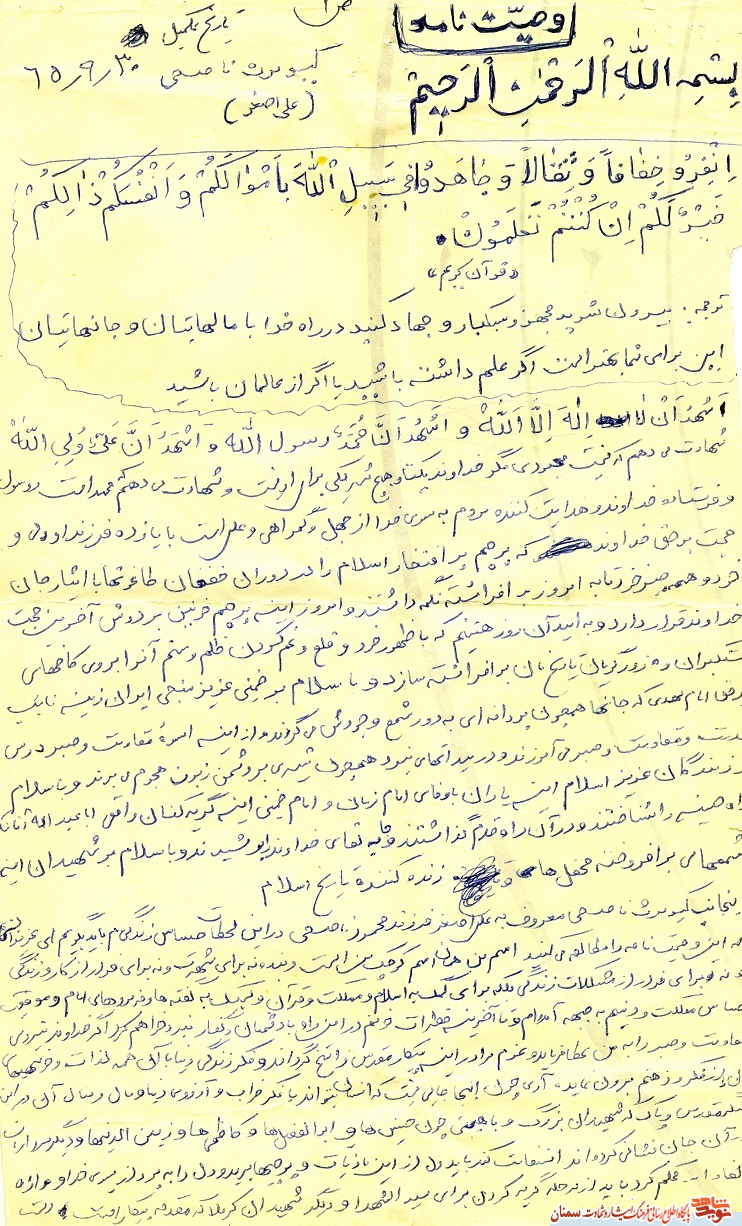 وصیت نامه
بسم الله الرحمن الرحیم
تاریخ تکمیل
کیومرث ناصحی ۶۵/۹/۳۰
(علی اصغر)
اِنْفِرُو خِفٰافاً وَ ثِقٰالاً وَ جٰاهَدُوا فی سَبیلِ اللّٰهَ بِاَمْوٰالَکُمْ وَ اَنْفُسَکُمْ ذٰالِکُمْ
خَیْرٌ لَکُمْ اِنْ کُنْتُمْ تَعْلَمُونْ.
«قرآن کریم»
ترجمه: بیرون شوید مجهز و سبکبار و جهاد کنید در راه خدا با مالهایتان و جانهایتان
این برای شما بهتر است اگر علم داشته باشید یا اگر از عالمان باشید
اَشْهَدُ اَنْ لا اِلهَ اِلَّا اللّٰهْ و اَشْهَدُ اَنَّ مُحَمَّدً رسول اللّٰه و اَشْهَدُ اَنَّ عَلیً وَلیِ اللّٰهْ
شهادت می دهم که نیست معبودی مگر خداوند یکتا و هیچ شریکی برای او نیست و شهادت می دهم که محمد است رسول
و فرستاده خداوند و هدایت کننده مردم به سوی خدا از جهل و گمراهی و علی است با یازده فرزند او ولی و
حجت بر حق خداوند که پرچم پر افتخار اسلام را در دوران خفقان طاغوتها با ایثار جان
خود و همه چیز خود تا به امروز بر افراشته نگه داشتند و امروز اینه پرچم خونین بر دوش آخرین حجت
خداوند قرار دارد و به امید آن روز هستیم که با ظهور خود و قلع و قمع کردن ظلم و ستم آنرا بروی کاخهای
ستکبران و زورگویان تاریخ مان برافراشته سازد و با سلام بر خمینی عزیز منجی ایران زمین نایب
بر حق امام مهدی که جانها همچون پروانه ای به دور شمع وجودش می گردند و از اینه اسوهٔ مقاومت و صبر درس
و مقاومت و صبر می آموزند و در میدانهای نبرد همچون شیری بر دشمن زبون هجوم می برند و با سلام
رزمندگان عزیز اسلام اینه یاران باوفای امام زمان و امام خمینی اینه گریه کنان واقعی ابا عبدالله آنان که
راه حسین را شناختند و در آن راه قدم گذاشتند و به لقای خداوند پیوستند و با سلام بر شهیدان اینه
شمعهای برافروخته محفل ها و زنده کنندهٔ تاریخ اسلام
اینجانب کیومرث ناصحی معروف به علی اصغر فرزند محمود ناصحی در این لحظات حساس زندگی ام باید بگویم ای عزیزانی
که این وصیت نامه را مطالعه می کنید اسم من همان اسم کوچک من است و بنده نه برای شهرت و نه برای فرار از کار و زندگی
و نه برای فرار از مشکلات زندگی بلکه برای کمک به اسلام و مملکت و قرآن و لبیک به گفته ها و فرموده های امام و موقعیت
حساس مملکت و دینم به جبهه آمده ام و تا آخرین قطرات خونم در این راه با دشمنان و کفار نبرد خواهم کرد اگر خداوند نیروی
مقاومت و صبر را به من عطا فرماید و عزم مرا در اینه پیکار مقدس راسخ گرداند و فکر زندگی دنیا با آن همه لذات و خوشیهای
آن را از فکر و ذهنم بیرون نماید. آری چون اینجا جایی نیست که انسان بتواند با فکر خراب و آرزوی دنیا و مال و منال آن در این
سنگر مقدس و پاک که شهیدان بزرگ و با همتی چون حسین ها و ابوالفضل ها و کاظمی ها و زین الدینها و دیگر سرداران
در آن جان فشانی کرده اند استقامت کند باید دل از این مادیات و پوچیها برید و دل را به پرواز بسوی خدا
باید از مرحله گریه کردن برای سید الشهدا و دیگر شهیدان کربلا که مقدمه پیکار است
نوید شاهد پایگاه اطلاع رسانی فرهنگ ایثار و شهادت سمنان